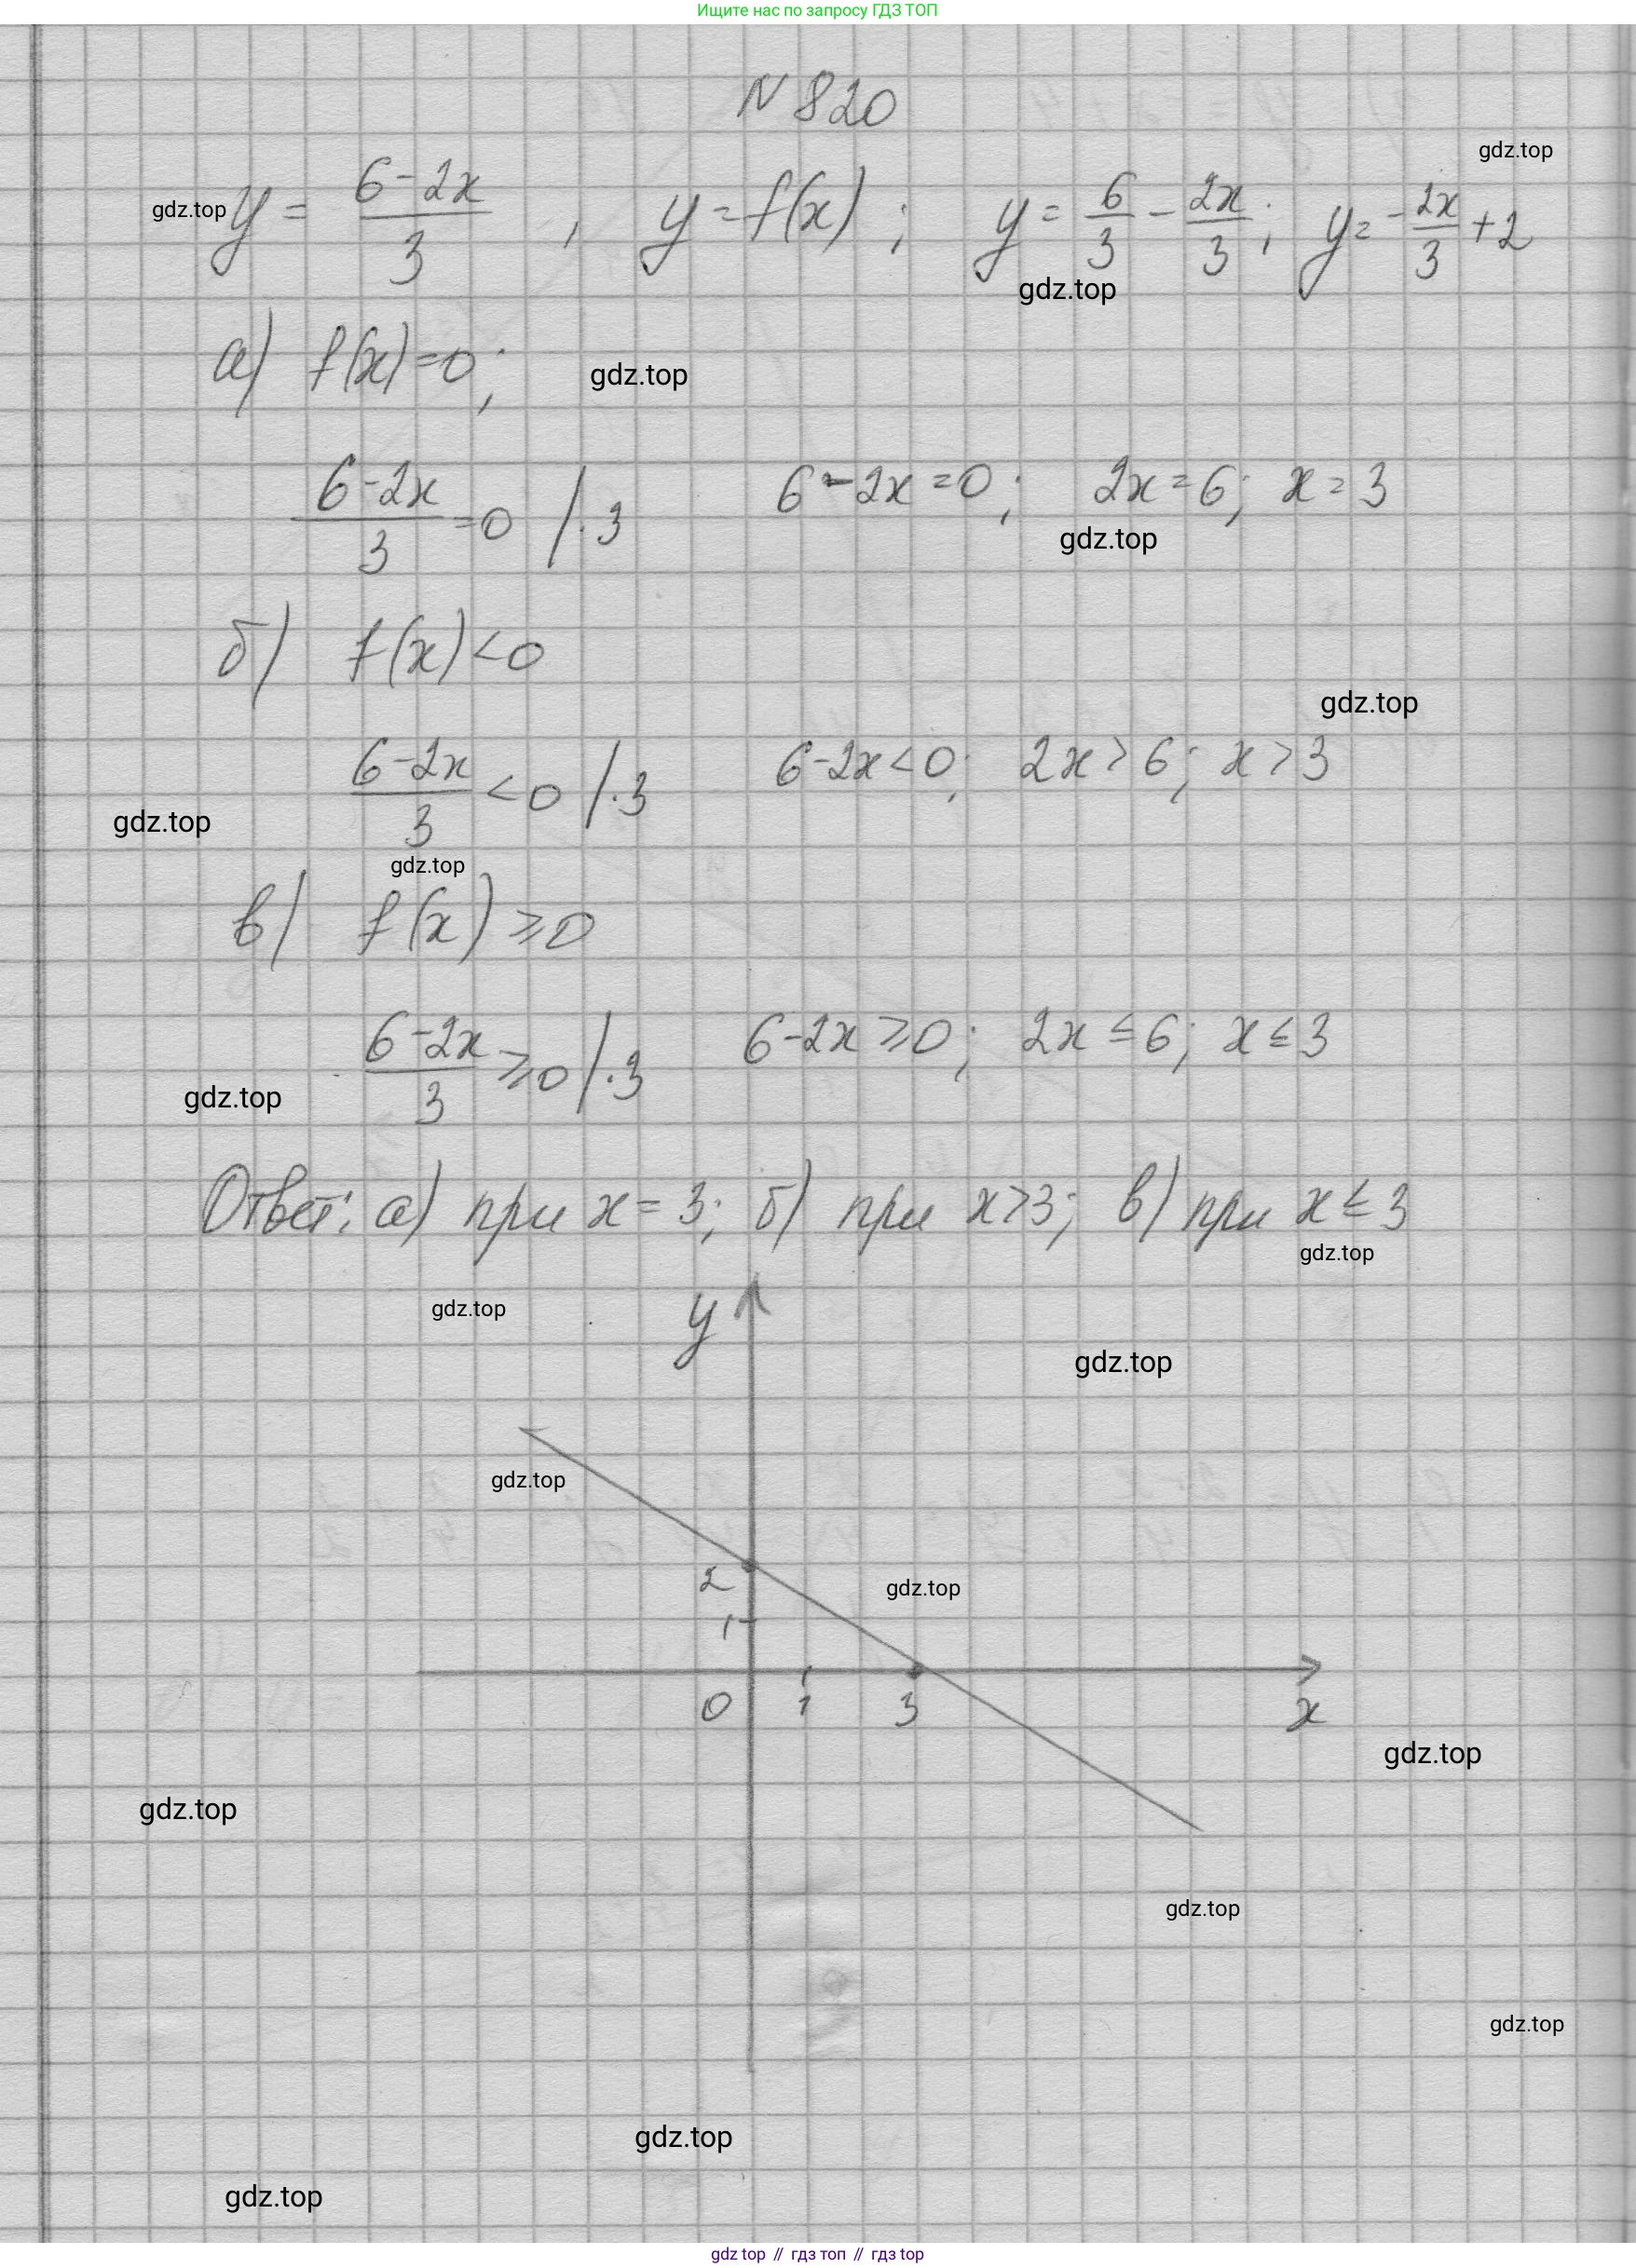 Ищите нас по запросу ГДЗ ТОП
N 820
gdz.top
gdz.top y = (6-2x)/3 , y = f(x) ; y = 6/3 - 2x/3 ; y = -2x/3 + 2
gdz.top
а) f(x) = 0;
gdz.top
(6-2x)/3 = 0 / · 3 6-2x = 0; 2x = 6; x = 3
gdz.top
б) f(x) < 0
gdz.top
(6-2x)/3 < 0 / · 3 6-2x < 0; 2x > 6; x > 3
gdz.top
gdz.top
в) f(x) ⩾ 0
(6-2x)/3 ⩾ 0 / · 3 6-2x ⩾ 0; 2x ≤ 6; x ≤ 3
gdz.top
Ответ: а) при x = 3; б) при x > 3; в) при x ≤ 3
gdz.top
gdz.top
y
gdz.top
gdz.top
2
gdz.top
1
0 1 3 x
gdz.top
gdz.top
gdz.top
gdz.top
gdz.top
gdz.top
gdz top // гдз топ // гдз top